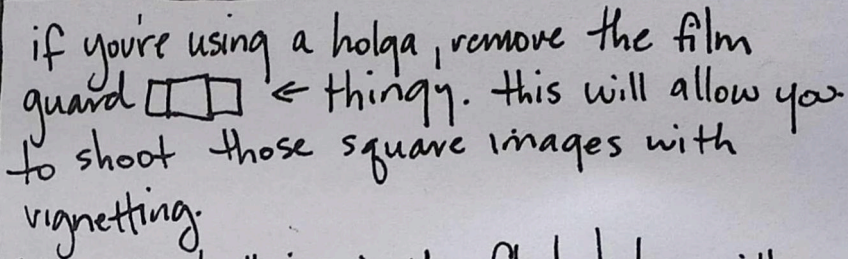 if you're using a holga, remove the film
guard ← thingy. this will allow you
to shoot those square images with
vignetting.